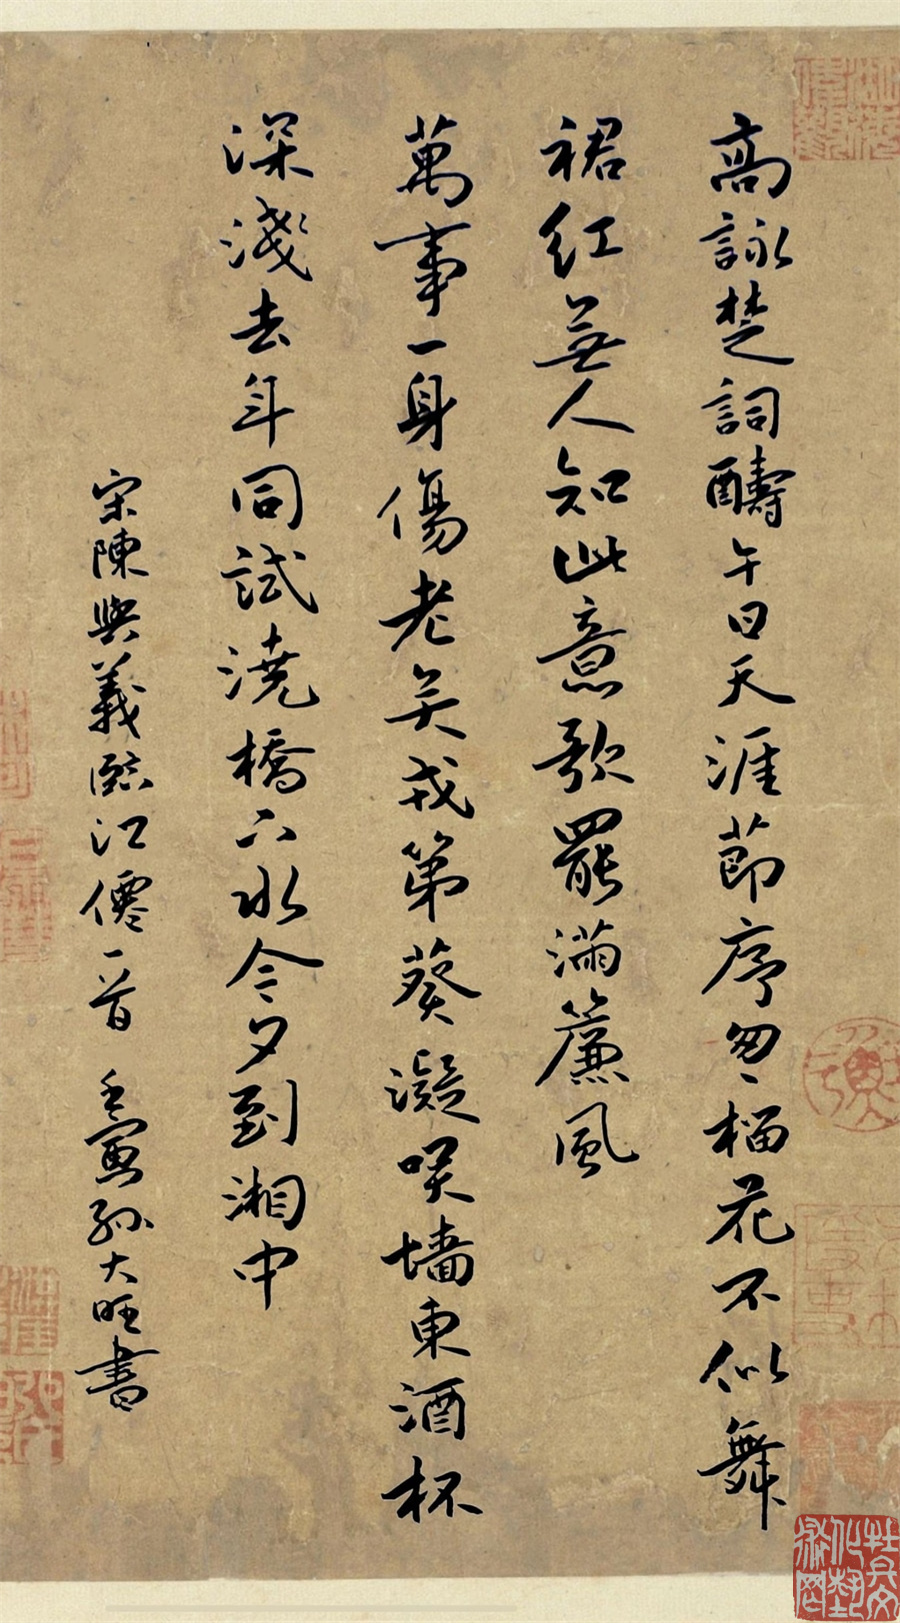 高詠楚詞醻午日天涯節序匆〻榴花不似舞
裙紅無人知此意歌罷滿簾風
萬事一身傷老矣戎第葵凝咲墻東酒杯
深淺去年同試澆橋下水今夕到湘中
宋陳與義臨江僊一首 壬寅孫大旺書